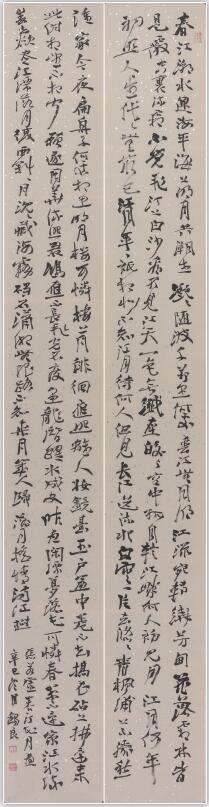 春江潮水連海平海上明月共潮生灩灩隨波千萬里何處春江無月明江流宛轉繞芳甸月照花林皆
似霰空裏流霜不覺飛汀上白沙看不見江天一色無纖塵皎皎空中孤月輪江畔何人初見月江月何年
初照人人生代代無窮已江月年年祇相似不知江月待何人但見長江送流水白雲一片去悠悠青楓浦上不勝愁
誰家今夜扁舟子何處相思明月樓可憐樓上月徘徊應照離人妝鏡臺玉戶簾中卷不去搗衣砧上拂還來
此時相望不相聞願逐月華流照君鴻雁長飛光不度魚龍潛躍水成文昨夜閑潭夢落花可憐春半不還家江水流
春去欲盡江潭落月復西斜斜月沉沉藏海霧碣石瀟湘無限路不知乘月幾人歸落月搖情滿江樹
張若虛春江花月夜
辛巳冬月